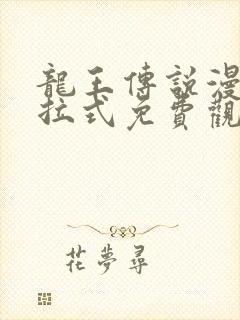 龍王傳說漫
拉式免費觀
花夢尋